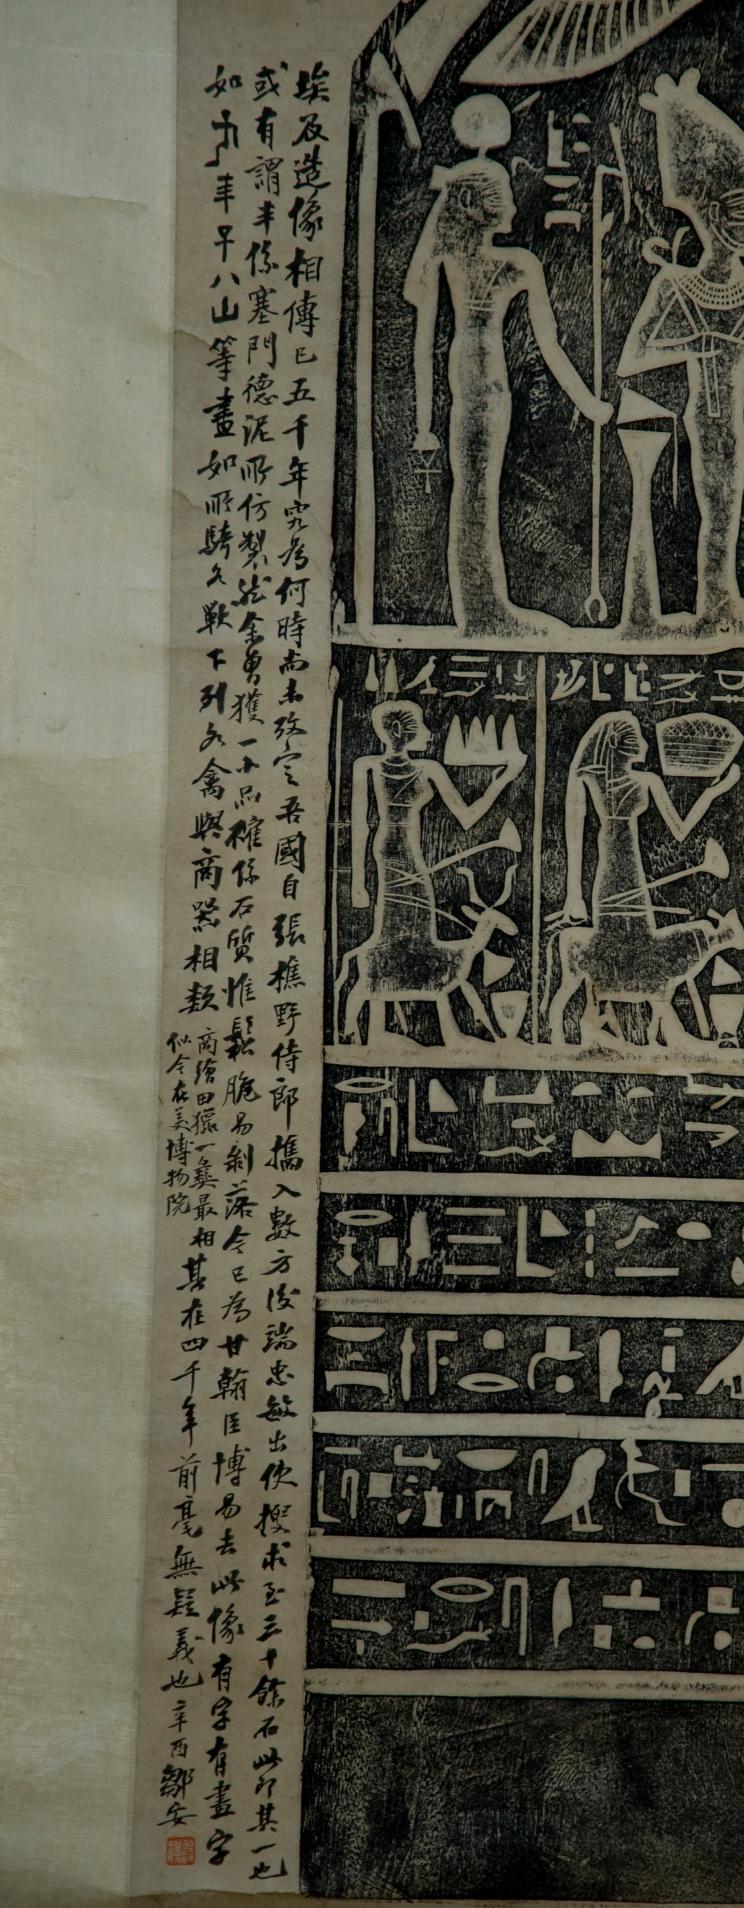 埃及造像相傳已五千年究為何時尚未攷定吾國自張樵野侍郎攜入數方後端忠敏出使搜求至三十餘石此即其一也
或有謂半係塞門德泥所仿製然余曾獲一小品確係石質惟鬆脆易剝落今已為甘翰臣博易去此像有字有畫字
如丰子八山等畫如所騎各獸下列各禽與商器相類
商繪田獵一彝最相
似今在美博物院
其在四千年前毫無疑義也辛酉鄒安